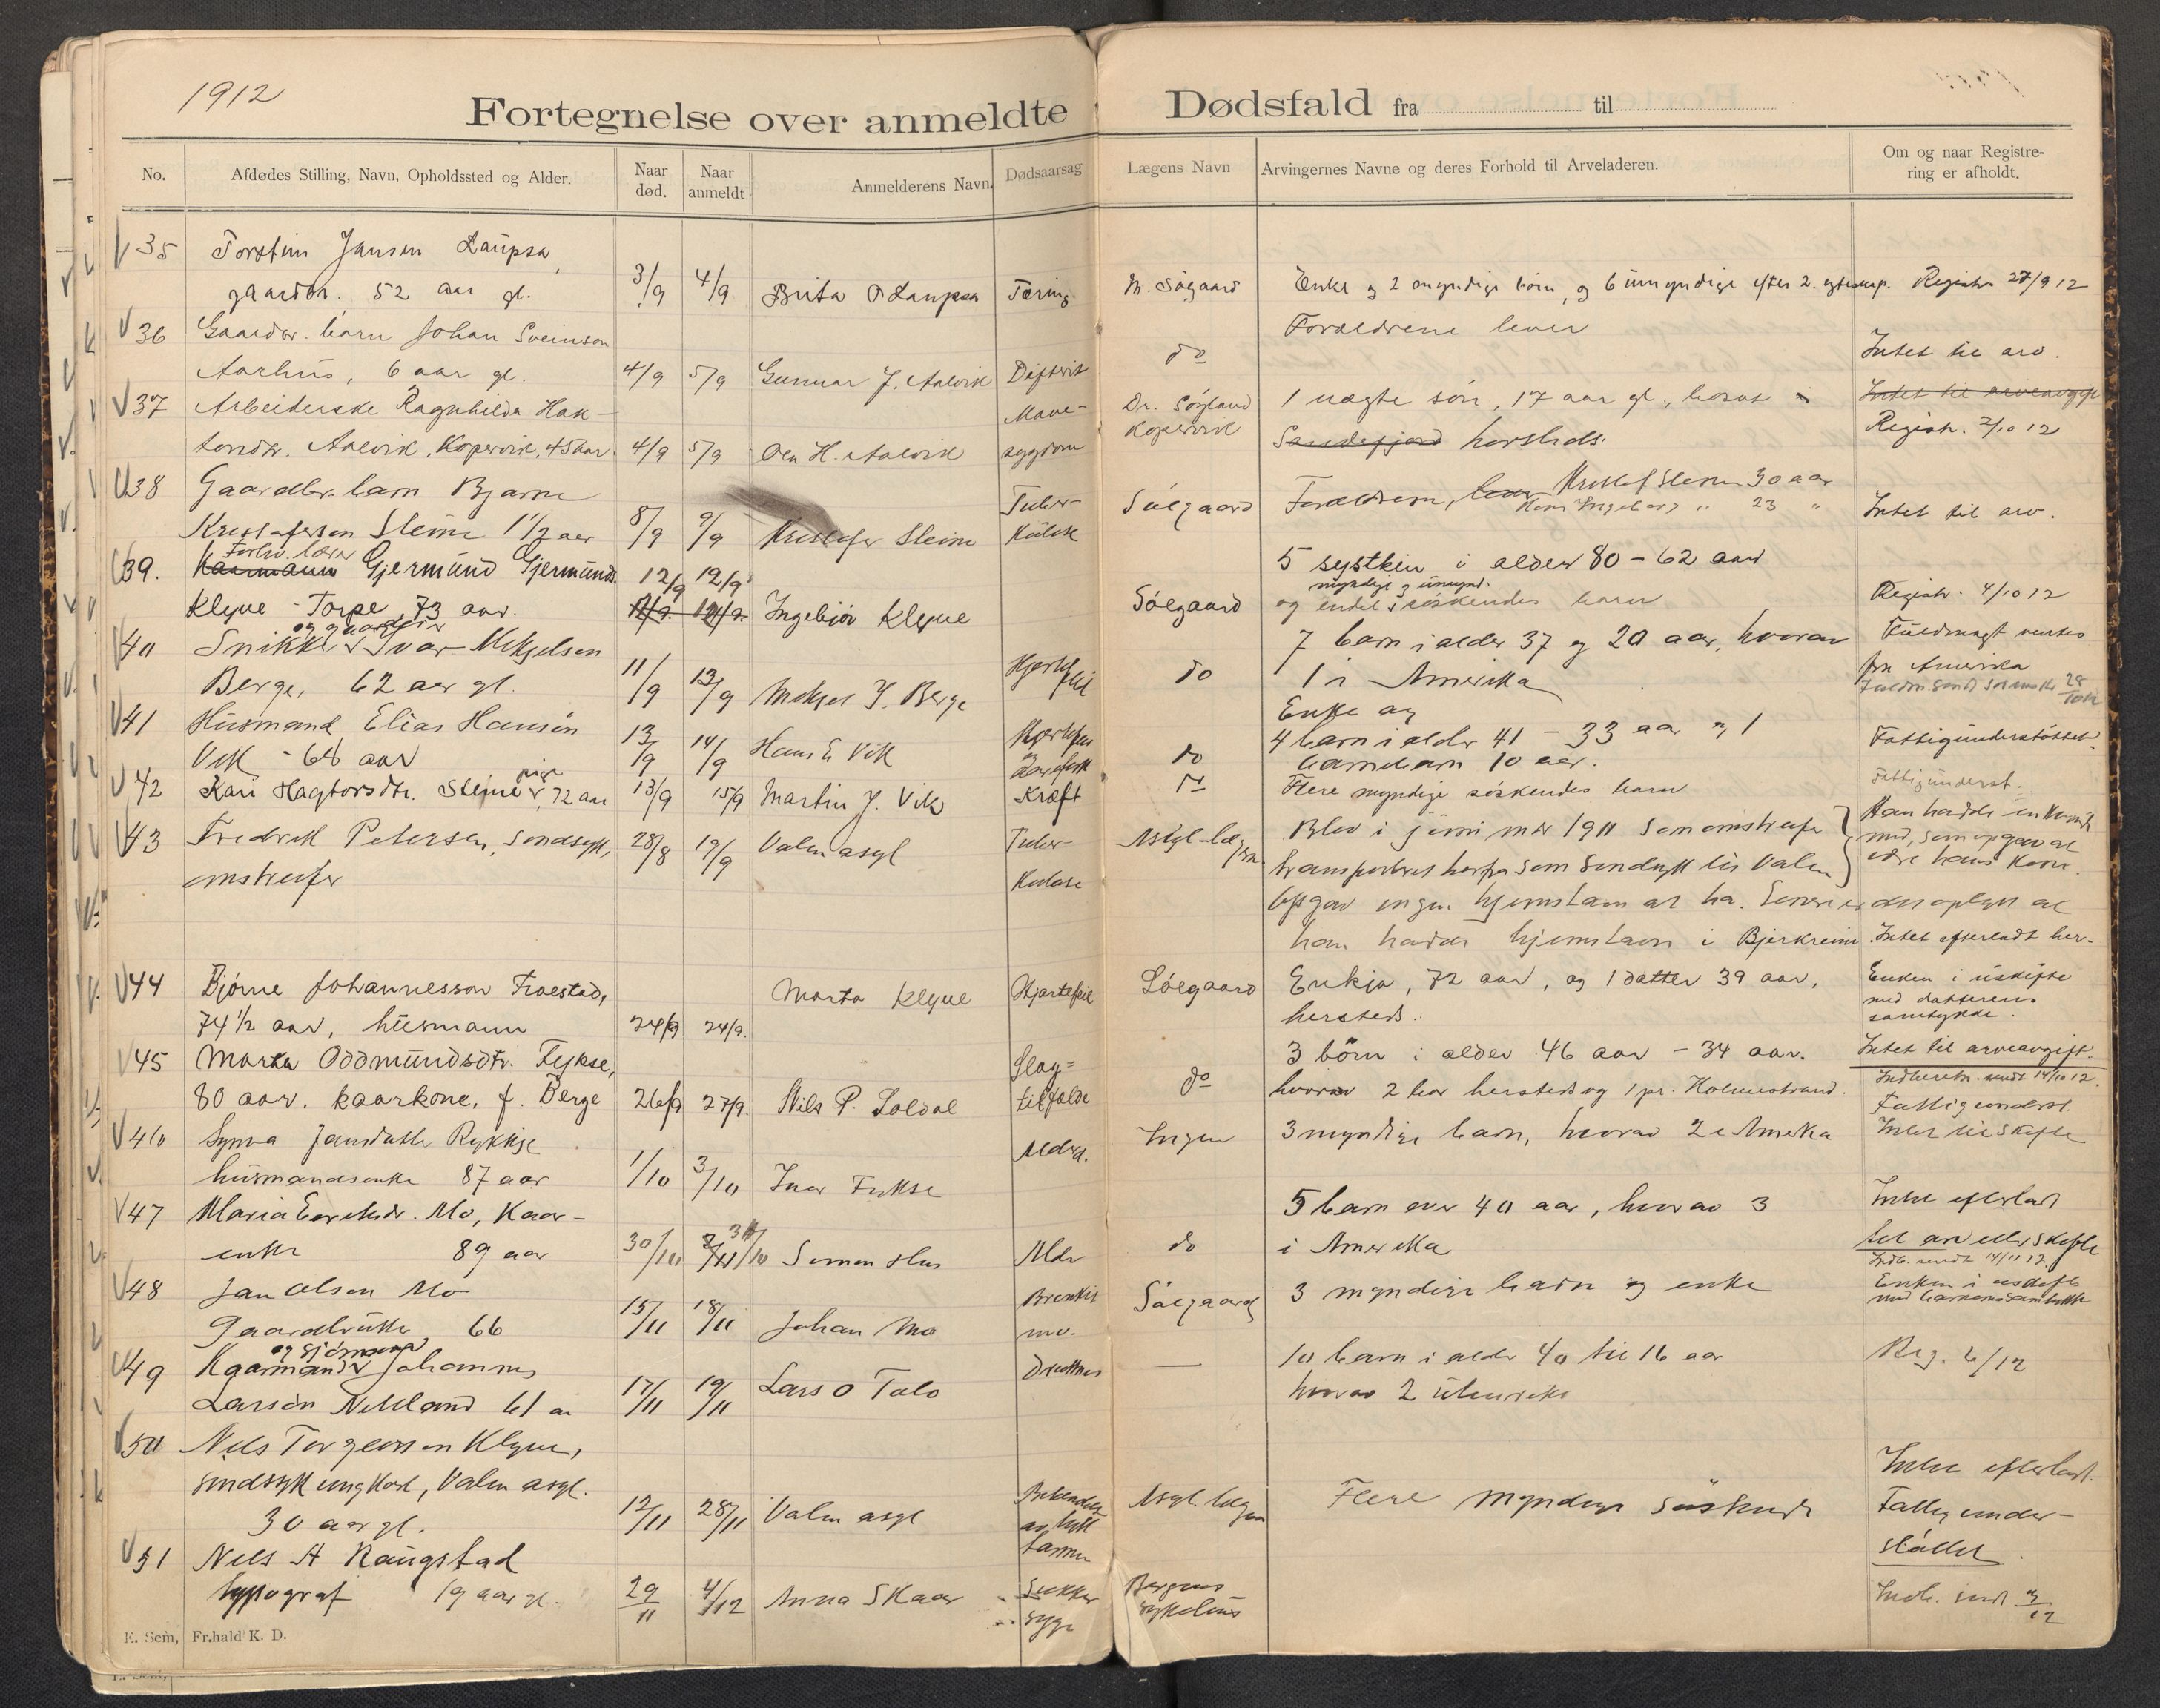 1912
Fortegnelse over anmeldte Dødsfald fra til
No.
Afdødes Stilling, Navn, Opholdssted og Alder.
Naar død.
Naar anmeldt
Anmelderens Navn.
Dødsaarsag
Lægens Navn
Arvingernes Navne og deres Forhold til Arveladeren.
Om og naar Registre-
ring er afholdt.
35 Torstein Jansen Laupsa,
gaardbr. 52 aar gl. 3/9 4/9 Brita O Laupsa Tæring. M. Søgaard Enke og 2 myndige børn, og 6 umyndige efter 2. egteskap. Registr. 27/9 12
36 Gaardbr. barn Johan Sveinson Forældrene lever
Aarhus, 6 aar gl. 4/9 5/9 Gunnar J. Aalvik Difterit do Intet til arv.
37 Arbeiderske Ragnhilda Hak- Mave- Dr. Sørland 1 uægte søn, 17 aar gl., bosat i Intet til arveavgift
tonsdr. Aalvik, Kopervik, 45 aar. 4/9 5/9 Ola H. Aalvik sygdom Kopervik Sandefjord hersteds. Registr. 2/10 12
38 Gaardbr. barn Bjarne Tuber- Forældrene, lever Kristof Steine 30 aar
Kristofersen Steine 1 1/2 aar 8/9 9/9 Kristofer Steine kulose Sølgaard Kone Ingeborg " 23 " Intet til arv.
39. Kaarmann Forhv. lærer Gjermund Gjermunds. 12/9 12/9 5 systkin i alder 80 - 62 aar
Klyve - Torpe, 73 aar. Ingebjør Klyve Sølgaard og endel myndige og umynd. søskendes barn Registr. 4/10 12
40 Snikker og gaardbr. Ivar Mikjelson 7 barn i alder 37 og 20 aar, hvorav Fuldmagt ventes
Berge, 62 aar gl. 11/9 13/9 Mikjel J. Berge Hjertefeil do 1 i Amerika fra Amerika
41 Husmand Elias Hansen Enke og
Vik - 68 aar 13/9 14/9 Hans E Vik do 4 barn i alder 41 - 33 aar og 1 Fattigunderstøttet.
barnebarn 10 aar.
42 Kari Hagtorsdtr. Steine pige, 72 aar 13/9 15/9 Martin J. Vik Kræft do Flere myndige søskendes barn Fattigunderst.
43 Fredrik Petersen, sindssyk, 28/8 19/9 Valen asyl Tuber- Asyl-læ- Blev i juni mdr 1911 som omstreifer Han hadde en kvinde
omstreifer kulose transporteret herfra som sindssyk til Valen med, som opgav at
være hans kone.
Opgav ingen hjemstavn at ha. Senere er det oplyst at
han hadde hjemstavn i Bjerkreim. Intet efterladt her.
44 Bjørne Johannesson Traestad, Marta Klyve Hjertefeil Sølgaard Enkja, 72 aar, og 1 datter 39 aar, Enken i uskifte
74 1/2 aar, husmann 24/9 24/9. hersteds. med datterens
samtykke.
45 Marta Oddmundsdtr. Fykse, Slag- 3 børn i alder 46 aar - 34 aar. Intet til arveavgift.
80 aar. kaarkone, f. Berge 26/9 27/9. Nils P. Soldal tilfælde do hvorav 2 bor hersteds og 1 pr. Holmestrand. Indberetn. sendt 14/10 12.
Fattigunderst.
46 Synva Jansdatter Rykkje Alderd. Ingen 3 myndige barn, hvorav 2 i Amerika Intet til skifte
husmandsenke 87 aar 1/10 3/10 Ivar Fykse
47 Maria Eiriksdr. Mo, Kaar- 5 barn over 40 aar, hvorav 3 Intet efterlat
enke 89 aar 30/10 Simon Hus Alder do i Amerika til arv eller skifte
Indb. sendt 14/11 12.
48 Jan Olsen Mo Sølgaard 3 myndige barn og enke Enken i uskifte
med barnenes samtykke
Gaardbruker 66 15/11 18/11 Johan Mo
49 Kaarmand og sjømann Johannes Druknet — 10 barn i alder 40 til 16 aar Reg. 6/12
Larsen Nekland 61 aar 17/11 19/11 Lars O Tolo hvorav 2 i Amerika
50 Nils Torgeirson Klyve,
sindssyk ungkarl, Valen asyl. Intet efterlatt.
30 aar gl. 12/11 28/11 Valen asyl Asyl. lægen Flere myndige søskende Fattigunder-
støttet.
51 Nils A Haugstad
typograf 19 aar gl. 29/11 4/12 Anna Skaar Sukker- Bergens Indb. sendt
syge sykehus
E. Sem, Fr.hald K. D.